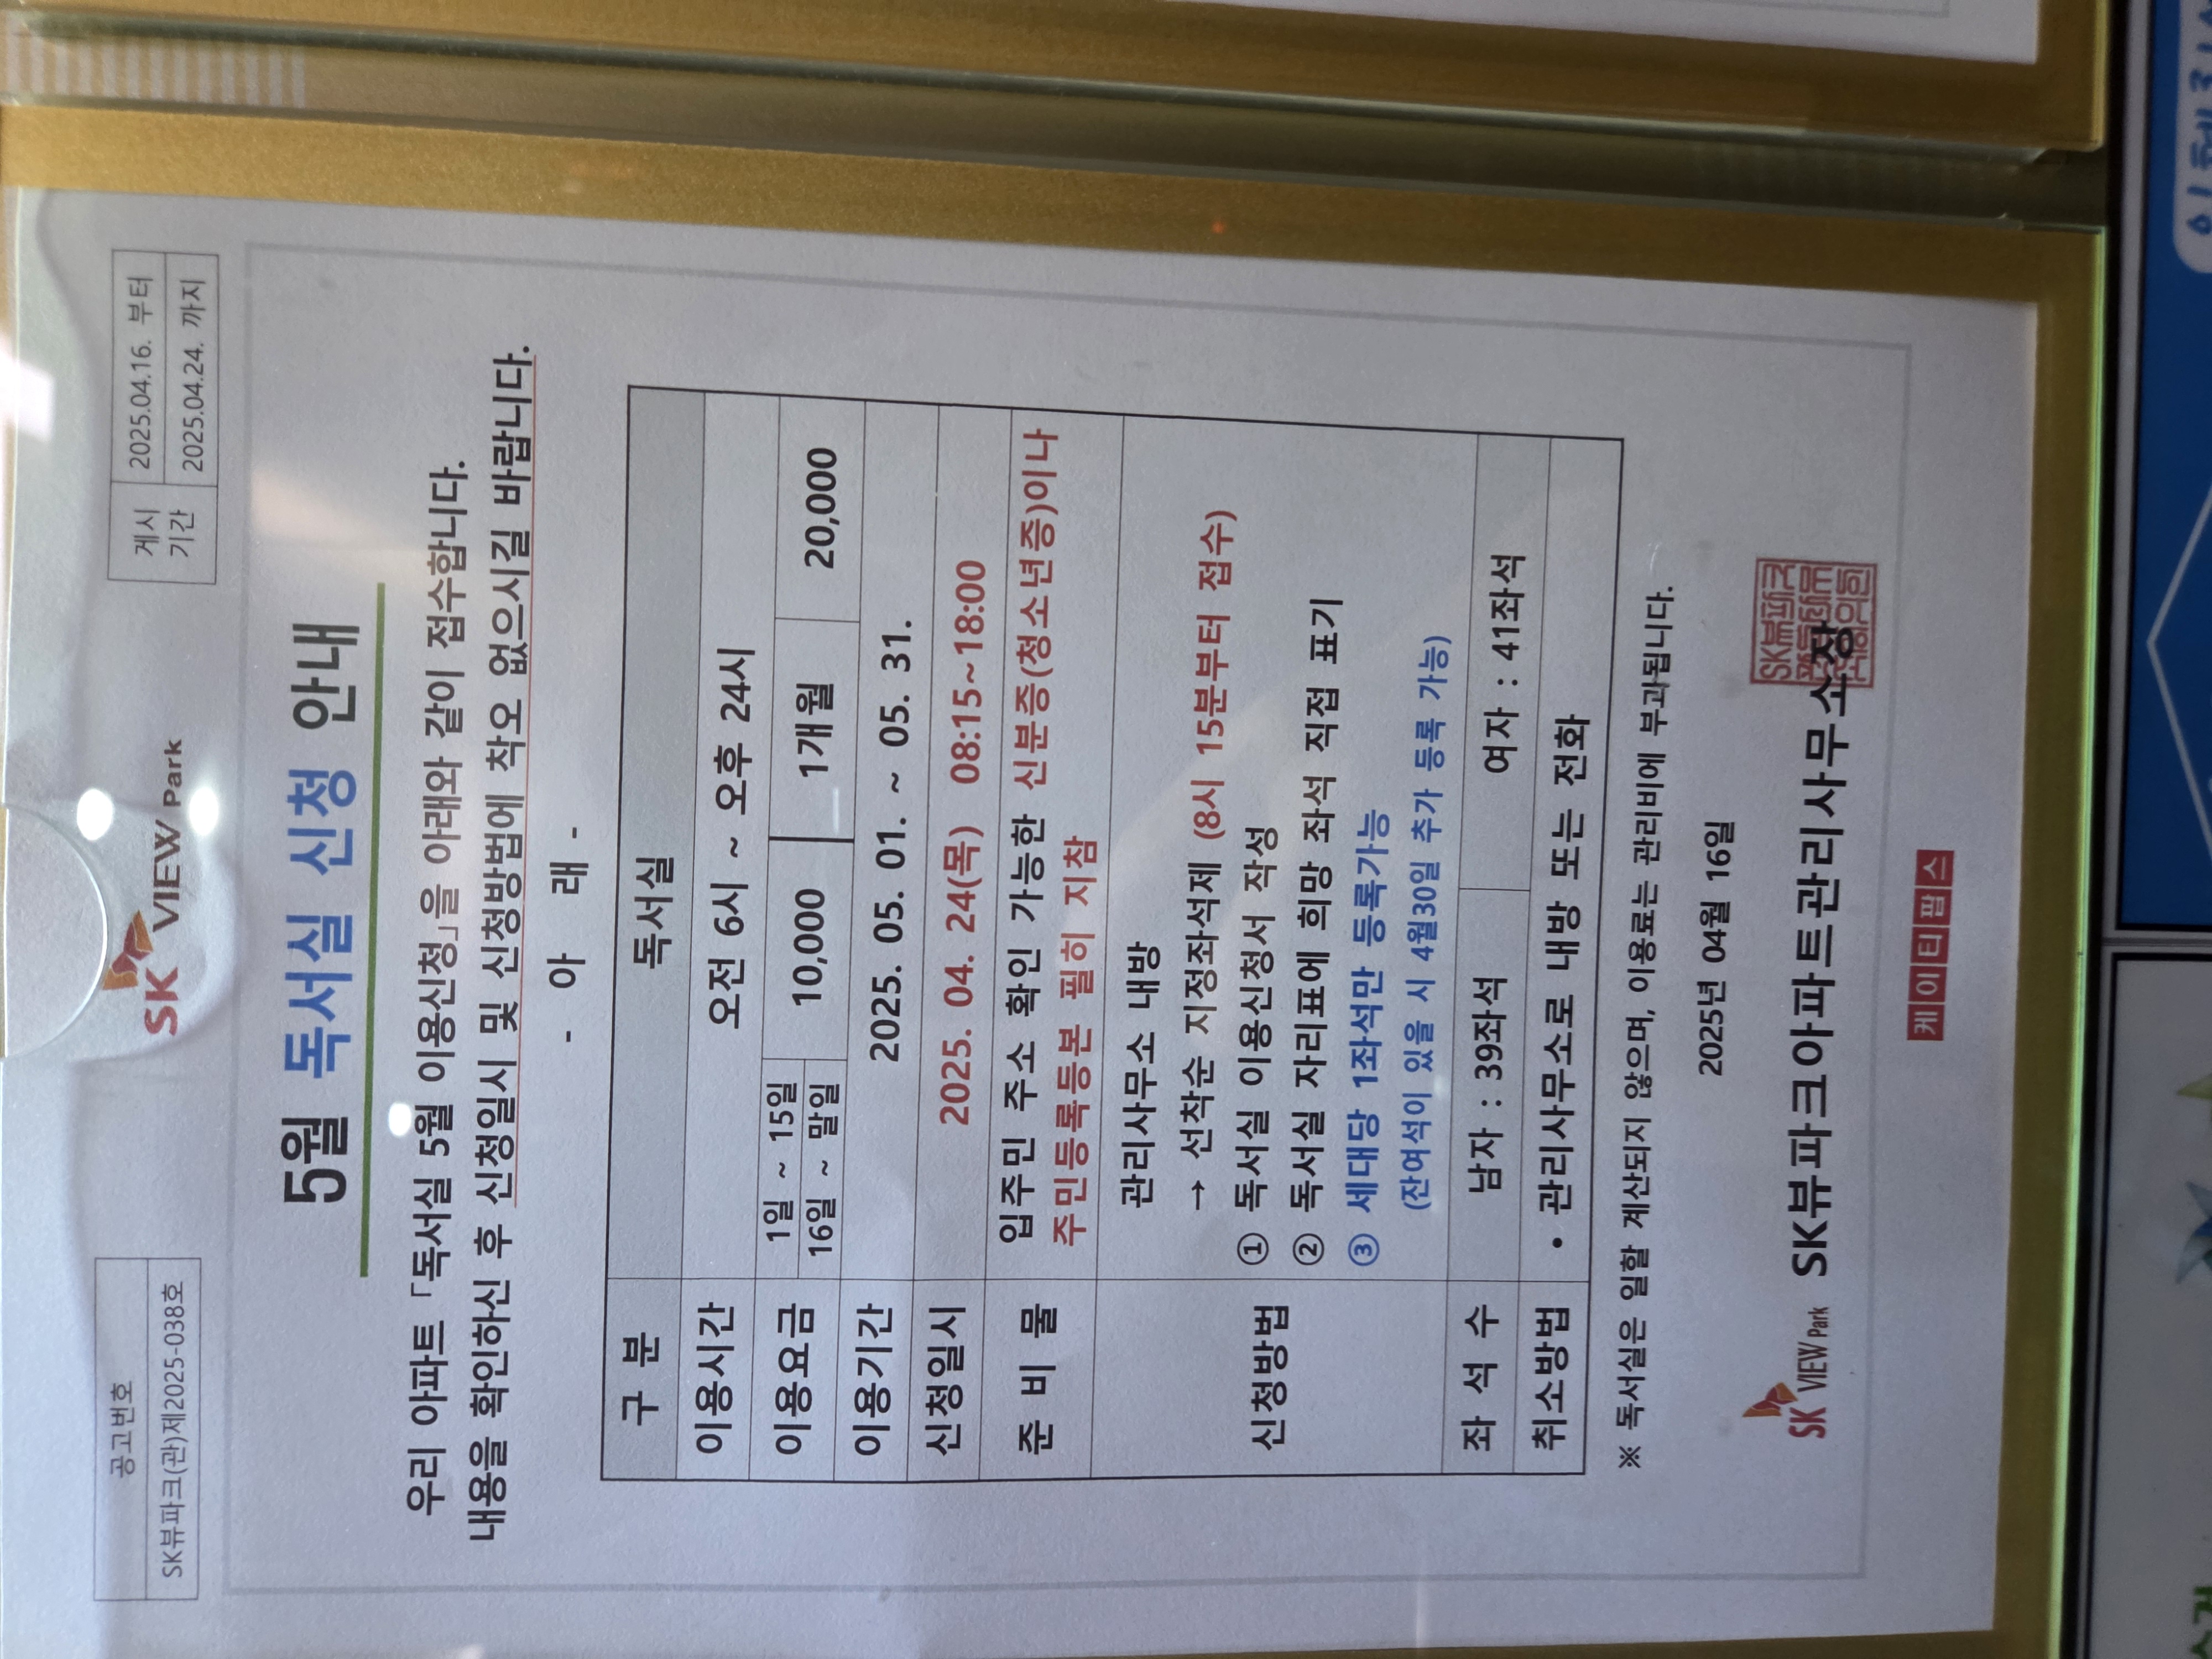 공고번호
SK뷰파크(관)제2025-038호
SK VIEW Park
게시 기간
2025.04.16. 부터
2025.04.24. 까지
5월 독서실 신청 안내
우리 아파트 「독서실 5월 이용신청」을 아래와 같이 접수합니다.
내용을 확인하신 후 신청일시 및 신청방법에 착오 없으시길 바랍니다.
- 아 래 -
구 분 독서실
이용시간 오전 6시 ~ 오후 24시
이용요금 1일 ~ 15일 10,000 1개월 20,000
16일 ~ 말일
이용기간 2025. 05. 01. ~ 05. 31.
신청일시 2025. 04. 24(목) 08:15~18:00
준 비 물 입주민 주소 확인 가능한 신분증(청소년증)이나
주민등록등본 필히 지참
신청방법 관리사무소 내방
→ 선착순 지정좌석제 (8시 15분부터 접수)
① 독서실 이용신청서 작성
② 독서실 자리표에 희망 좌석 직접 표기
③ 세대당 1좌석만 등록가능
(잔여석이 있을 시 4월30일 추가 등록 가능)
좌 석 수 남자 : 39좌석 여자 : 41좌석
취소방법 • 관리사무소로 내방 또는 전화
※ 독서실은 일할 계산되지 않으며, 이용료는 관리비에 부과됩니다.
2025년 04월 16일
SK VIEW Park SK뷰파크아파트관리사무소장
케이티팝스